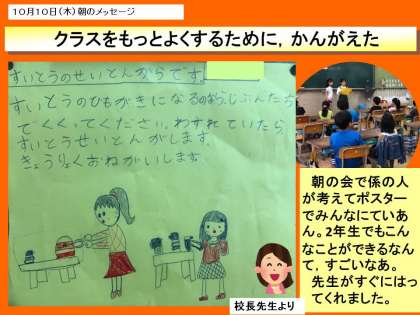 10月10日(木)朝のメッセージ
クラスをもっとよくするために,かんがえた
すいとうのせいとんがらです。
すいとうのひもがきになるのならじぶんたち
でくくってください。わすれていたら
すいとうせいとんがします。
きょうりょくおねがいします。
朝の会で係の人
が考えてポスター
でみんなにていあ
ん。2年生でもこん
なことができるなん
て,すごいなあ。
先生がすぐにはっ
てくれました。
校長先生より